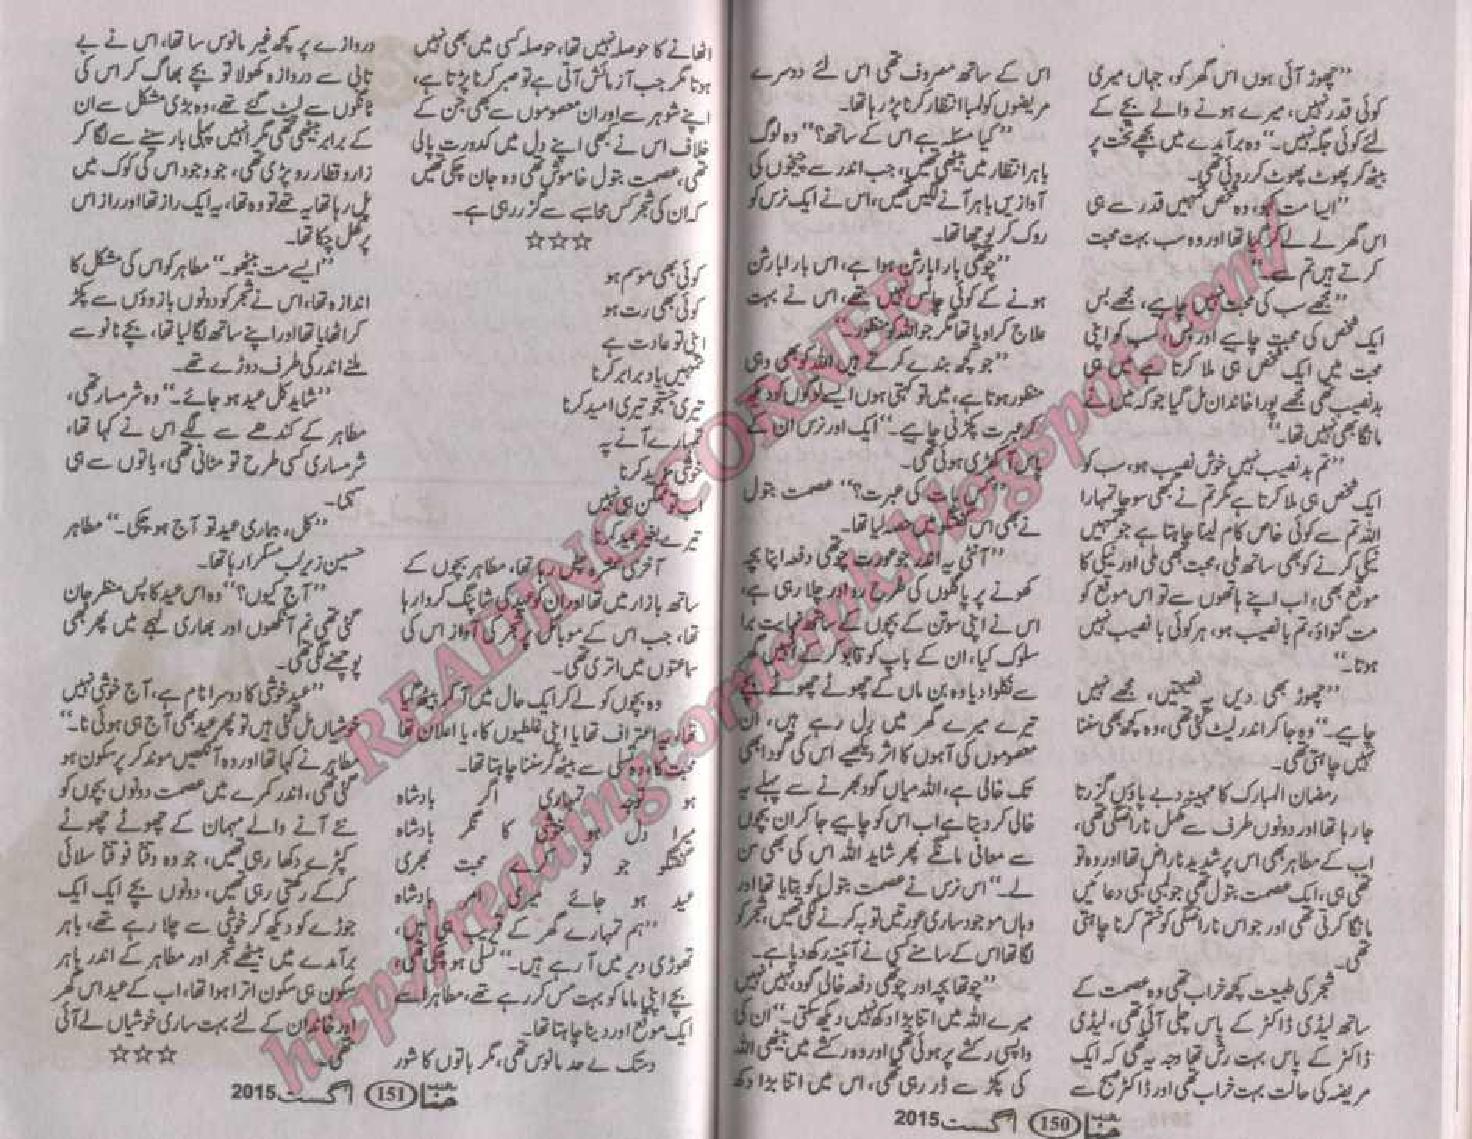 ”چھوڑ آئی ہوں اس گھر کو، جہاں میری
کوئی قدر نہیں، میرے ہونے والے بچے کے
لئے کوئی جگہ نہیں۔“ وہ برآمدے میں بچھے تخت پر
بیٹھ کر پھوٹ پھوٹ کر روئی تھی۔
”ایسا مت کہو، وہ شخص تمہیں قدر سے ہی
اس گھر لے کر گیا تھا اور وہ سب بہت محبت
کرتے ہیں تم سے۔“
”مجھے سب کی محبت نہیں چاہیے، مجھے بس
ایک شخص کی محبت چاہیے اور بس، سب کو اپنی
محبت میں ایک شخص ہی ملا کرتا ہے میں ہی
بدنصیب تھی مجھے پورا خاندان مل گیا جو کہ میں نے
مانگا بھی نہیں تھا۔“
”تم بدنصیب نہیں خوش نصیب ہو، سب کو
ایک شخص ہی ملا کرتا ہے مگر تم نے کبھی سوچا تمہارا
اللہ تم سے کوئی خاص کام لینا چاہتا ہے جو تمہیں
نیکی کرنے کو بھی ساتھ ملی، محبت بھی ملی اور نیکی کا
موقع بھی، اب اپنے ہاتھوں سے تو اس موقع کو
مت گنواؤ، تم با نصیب ہو، ہر کوئی با نصیب نہیں
ہوتا۔“
”چھوڑ بھی دیں یہ نصیحتیں، مجھے نہیں
چاہیے۔“ وہ جا کر اندر لیٹ گئی تھی، وہ کچھ بھی سننا
نہیں چاہتی تھی۔
رمضان المبارک کا مہینہ دبے پاؤں گزرتا
جا رہا تھا اور دونوں طرف سے مکمل ناراضگی تھی،
اب کے مطاہر بھی اس پر شدید ناراض تھا اور وہ تو
تھی ہی، ایک عصمت بتول تھی جو لمبی لمبی دعائیں
مانگا کرتی تھی اور جو اس ناراضگی کو ختم کرنا چاہتی
تھی۔
شجر کی طبیعت کچھ خراب تھی وہ عصمت کے
ساتھ لیڈی ڈاکٹر کے پاس چلی آئی تھی، لیڈی
ڈاکٹر کے پاس بہت رش تھا وجہ یہ تھی کہ ایک
مریضہ کی حالت بہت خراب تھی اور ڈاکٹر صبح سے
اس کے ساتھ مصروف تھی اس لئے دوسرے
مریضوں کو لمبا انتظار کرنا پڑ رہا تھا۔
”کیا مسئلہ ہے اس کے ساتھ؟“ وہ لوگ
باہر انتظار میں بیٹھی تھیں، جب اندر سے چیخوں کی
آوازیں باہر آنے لگیں تھیں، اس نے ایک نرس کو
روک کر پوچھا تھا۔
”چوتھی بار ابارشن ہوا ہے، اس بار ابارشن
ہونے کے کوئی چانس نہیں تھے، اس نے بہت
علاج کروایا تھا مگر جو اللہ کو منظور۔“
”جو کچھ بندے کرتے ہیں اللہ کو بھی وہی
منظور ہوتا ہے، میں تو کہتی ہوں ایسے لوگوں کو دیکھ
کر عبرت پکڑنی چاہیے۔“ ایک اور نرس ان کے
پاس آ کھڑی ہوئی تھی۔
”کس بات کی عبرت؟“ عصمت بتول
نے بھی اس گفتگو میں حصہ لیا تھا۔
”آنٹی یہ اندر جو عورت چوتھی دفعہ اپنا بچہ
کھونے پر پاگلوں کی طرح رو اور چلا رہی ہے،
اس نے اپنی سوتن کے بچوں کے ساتھ نہایت برا
سلوک کیا، ان کے باپ کو قابو کر کے انہیں گھر
سے نکلوا دیا وہ بن ماں کے چھوٹے چھوٹے بچے
تیرے میرے گھر میں رل رہے ہیں، ان
معصوموں کی آہوں کا اثر دیکھیے اس کی گود ابھی
تک خالی ہے، اللہ میاں گود بھرنے سے پہلے ہی
خالی کر دیتا ہے اب اس کو چاہیے جا کر ان بچوں
سے معافی مانگے پھر شاید اللہ اس کی بھی سن
لے۔“ اس نرس نے عصمت بتول کو بتایا تھا اور
وہاں موجود ساری عورتیں توبہ کرنے لگی تھیں، شجر کو
لگا تھا اس کے سامنے کسی نے آئینہ رکھ دیا ہے۔
”چوتھا بچہ اور چوتھی دفعہ خالی گود، نہیں نہیں
میرے اللہ میں اتنا بڑا دکھ نہیں دیکھ سکتی۔“ ان کی
واپسی رکشے پر ہوئی تھی اور وہ رکشے میں بیٹھی اللہ
کی پکڑ سے ڈر رہی تھی، اس میں اتنا بڑا دکھ
حنا 150 اگست 2015
اٹھانے کا حوصلہ نہیں تھا، حوصلہ کسی میں بھی نہیں
ہوتا مگر جب آزمائش آتی ہے تو صبر کرنا پڑتا ہے،
اپنے شوہر سے اور ان معصوموں سے بھی جن کے
خلاف اس نے کبھی اپنے دل میں کدورت پالی
تھی، عصمت بتول خاموش تھی وہ جان چکی تھیں
کہ ان کی شجر کس محاسبے سے گزر رہی ہے۔
☆☆☆
کوئی بھی موسم ہو
کوئی بھی رت ہو
اپنی تو عادت ہے
تمہیں یاد برابر کرنا
تیری جستجو تیری امید کرنا
تمہارے آنے پہ
خوشی مزید کرنا
اب ممکن ہی نہیں
تیرے بغیر عید کرنا
آخری عشرہ چل رہا تھا، مطاہر بچوں کے
ساتھ بازار میں تھا اور ان کو عید کی شاپنگ کروا رہا
تھا، جب اس کے موبائل پر شجر کی آواز اس کی
سماعتوں میں اتری تھی۔
وہ بچوں کو لے کر ایک حال میں آ کر بیٹھ گیا
تھا، یہ اعتراف تھا یا اپنی غلطیوں کا، یا اعلان تھا
محبت کا وہ تسلی سے بیٹھ کر سننا چاہتا تھا۔
ہو توجہ تمہاری اگر بادشاہ
میرا دل ہو خوشی کا نگر بادشاہ
گفتگو جو تو کرے محبت بھری
عید ہو جائے میری امر بادشاہ
”ہم تمہارے گھر کے قریب ہی ہیں،
تھوڑی دیر میں آ رہے ہیں۔“ تسلی ہو چکی تھی،
بچے اپنی ماما کو بہت مس کر رہے تھے، مطاہر اسے
ایک موقع اور دینا چاہتا تھا۔
دستک بے حد مانوس تھی، مگر باتوں کا شور
دروازے پر کچھ غیر مانوس سا تھا، اس نے بے
تابی سے دروازہ کھولا تو بچے بھاگ کر اس کی
ٹانگوں سے لپٹ گئے تھے، وہ بڑی مشکل سے ان
کے برابر بیٹھی تھی مگر انہیں پہلی بار سینے سے لگا کر
زار و قطار رو پڑی تھی، جو وجود اس کی کوک میں
پل رہا تھا یہ تھے تو وہ تھا، یہ ایک راز تھا اور راز اس
پر کھل چکا تھا۔
”ایسے مت بیٹھو۔“ مطاہر کو اس کی مشکل کا
اندازہ تھا، اس نے شجر کو دونوں بازوؤں سے پکڑ
کر اٹھایا تھا اور اپنے ساتھ لگا لیا تھا، بچے نانو سے
ملنے اندر کی طرف دوڑے تھے۔
”شاید کل عید ہو جائے۔“ وہ شرمسار تھی،
مطاہر کے کندھے سے لگے اس نے کہا تھا،
شرمساری کسی طرح تو مٹانی تھی، باتوں سے ہی
سہی۔
”کل، ہماری عید تو آج ہو چکی۔“ مطاہر
حسین زیر لب مسکرا رہا تھا۔
”آج کیوں؟“ وہ اس عید کا پس منظر جان
گئی تھی نم آنکھوں اور بھاری لہجے میں پھر بھی
پوچھنے لگی تھی۔
”عید خوشی کا دوسرا نام ہے، آج خوشی نہیں
خوشیاں مل گئی ہیں تو پھر عید بھی آج ہی ہوئی نا۔“
مطاہر نے کہا تھا اور وہ آنکھیں موند کر پرسکون ہو
گئی تھی، اندر کمرے میں عصمت دونوں بچوں کو
نئے آنے والے مہمان کے چھوٹے چھوٹے
کپڑے دکھا رہی تھیں، جو وہ وقتاً فوقتاً سلائی
کر کے رکھتی رہی تھیں، دونوں بچے ایک ایک
جوڑے کو دیکھ کر خوشی سے چلا رہے تھے، باہر
برآمدے میں بیٹھے شجر اور مطاہر کے اندر باہر
سکون ہی سکون اترا ہوا تھا، اب کے عید اس گھر
اور خاندان کے لئے بہت ساری خوشیاں لے آئی
تھی۔
☆☆☆
حنا 151 اگست 2015
READING CORNER
http://readingcornerpk.blogspot.com/